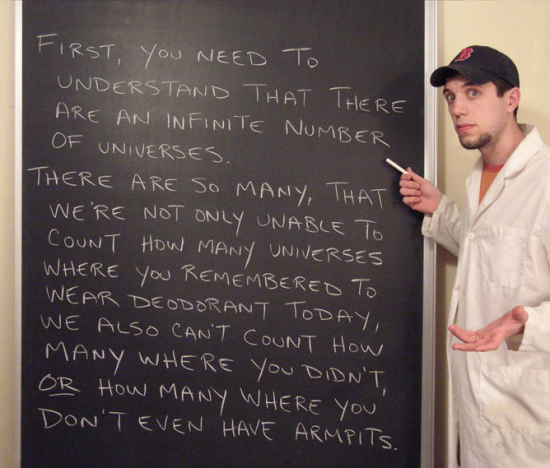 FIRST, YOU NEED TO
UNDERSTAND THAT THERE
ARE AN INFINITE NUMBER
OF UNIVERSES.
THERE ARE SO MANY, THAT
WE'RE NOT ONLY UNABLE TO
COUNT HOW MANY UNIVERSES
WHERE YOU REMEMBERED TO
WEAR DEODORANT TODAY,
WE ALSO CAN'T COUNT HOW
MANY WHERE YOU DIDN'T,
OR HOW MANY WHERE YOU
DON'T EVEN HAVE ARMPITS.
B